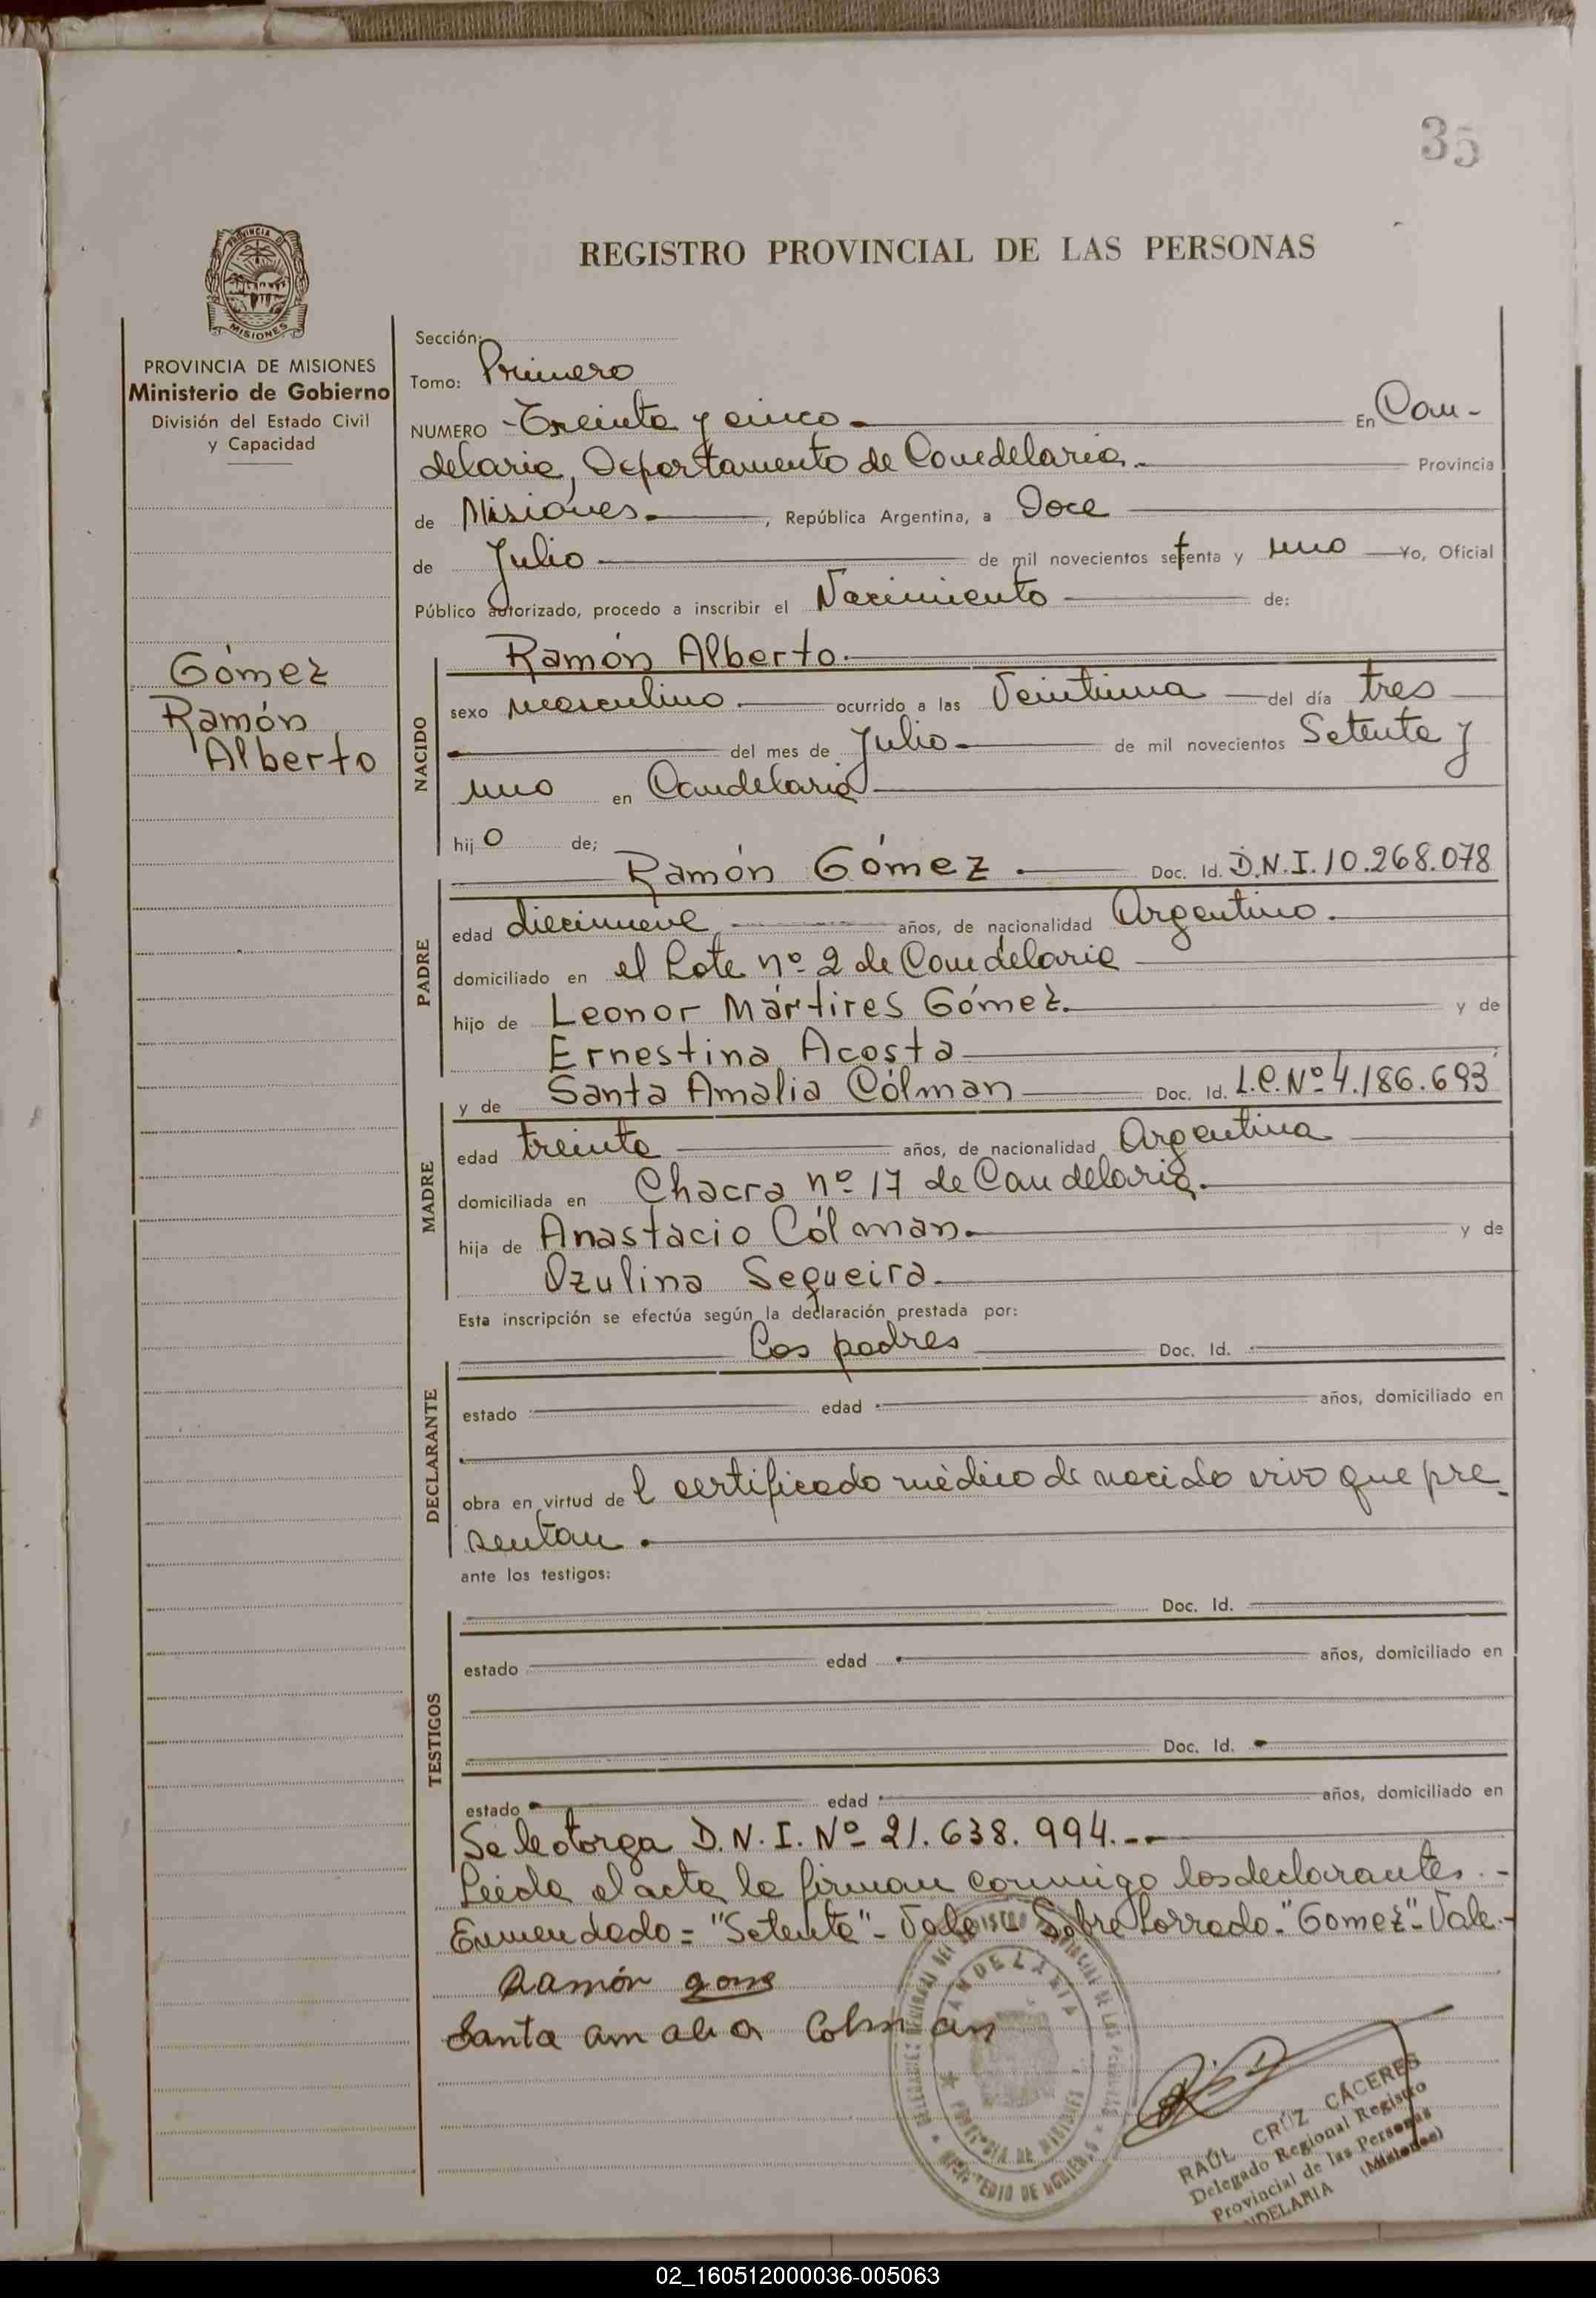 35
PROVINCIA DE
MISIONES
REGISTRO PROVINCIAL DE LAS PERSONAS
PROVINCIA DE MISIONES
Ministerio de Gobierno
División del Estado Civil
y Capacidad
Gómez
Ramón
Alberto
Sección:
Tomo: Primero
NUMERO -Treinta y cinco.- En Can-
delaria, Departamento de Candelaria.- Provincia
de Misiones.-, República Argentina, a Doce
de Julio de mil novecientos setenta y uno Yo, Oficial
Público autorizado, procedo a inscribir el Nacimiento de:
NACIDO
Ramón Alberto.
sexo masculino. ocurrido a las Veintiuna del día tres
del mes de Julio. de mil novecientos Setenta y
uno en Candelaria
hijo de;
PADRE
Ramón Gómez. Doc. Id. D.N.I. 10.268.078
edad diecinueve años, de nacionalidad Argentino.
domiciliado en el Lote nº 2 de Candelaria
hijo de Leonor Mártires Gómez. y de
Ernestina Acosta
MADRE
y de Santa Amalia Cólman Doc. Id. L.C. Nº 4.186.693
edad treinta años, de nacionalidad Argentina
domiciliada en Chacra nº 17 de Candelaria.
hija de Anastacio Cólman. y de
Ozulina Sequeira.
Esta inscripción se efectúa según la declaración prestada por:
DECLARANTE
Los padres Doc. Id.
estado edad años, domiciliado en
obra en virtud del certificado médico de nacido vivo que pre-
sentan.
ante los testigos:
TESTIGOS
Doc. Id.
estado edad años, domiciliado en
Doc. Id.
estado edad años, domiciliado en
Se le otorga D.N.I. Nº 21.638.994.--
Leída el acta la firman conmigo los declarantes.-
Enmendado= "Setenta"- Vale- Sobre borrado-"Gomez"-Vale.-
Ramón
Santa amalia Colman
CANDELARIA
PROVINCIA DE MISIONES
MINISTERIO DE GOBIERNO
RAÚL CRUZ CÁCERES
Delegado Regional Registro
Provincial de las Personas
NDELARIA (Misiones)
02_160512000036-005063